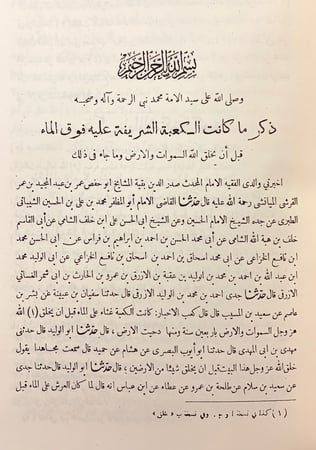 بسم الله الرحمن الرحيم
وصلى الله على سيد الامة محمد نبي الرحمة وآله وصحبه
ذكر ما كانت الكعبة الشريفة عليه فوق الماء
قبل أن يخلق الله السموات والارض وما جاء في ذلك
اخبرني والدي الفقيه الامام المحدث صدر الدين بقية المشايخ أبو حفص عمر بن عبد المجيد بن عمر
القرشي الميانشي رحمة الله عليه قال حدثنا القاضي الامام أبو المظفر محمد بن علي بن الحسين الشيباني
الطبري عن جده الشيخ الامام الحسين وعن الشيخ ابي الحسن علي بن خلف الشامي عن أبي القاسم
خلف بن هبة الله الشامي عن أبي محمد الحسن بن احمد بن ابراهيم بن فراس عن أبي الحسن محمد
ابن نافع الخزاعي عن أبي محمد اسحاق بن احمد بن اسحاق بن نافع الخزاعي عن أبي الوليد محمد
ابن عبد الله بن احمد بن محمد بن الوليد بن عقبة بن الازرق بن عمرو بن الحارث بن أبي شمر الغساني
الازرقي قال حدثنا جدي احمد بن محمد بن الوليد الازرقي قال حدثنا سفيان بن عيينة عن بشر بن
عاصم عن سعيد بن المسيب قال قال كعب الاحبار: كانت الكعبة غثاء على الماء قبل ان يخلق (١) الله
عز وجل السموات والارض باربعين سنة ومنها دحيت الارض ، قال حدثنا ابو الوليد قال حدثني
مهدي بن ابي المهدي قال حدثنا ابو ايوب البصري عن هشام عن حميد قال سمعت مجاهدا يقول
خلق الله عز وجل هذا البيت قبل ان يخلق شيئا من الارضين ، قال حدثنا ابو الوليد قال حدثنا جدي
عن سعيد بن سالم عن طلحة بن عمرو عن عطاء عن ابن عباس انه قال لما كان العرش على الماء قبل
(١) كذا في نسخة ا و ج . وفي نسخة ب « خلق »